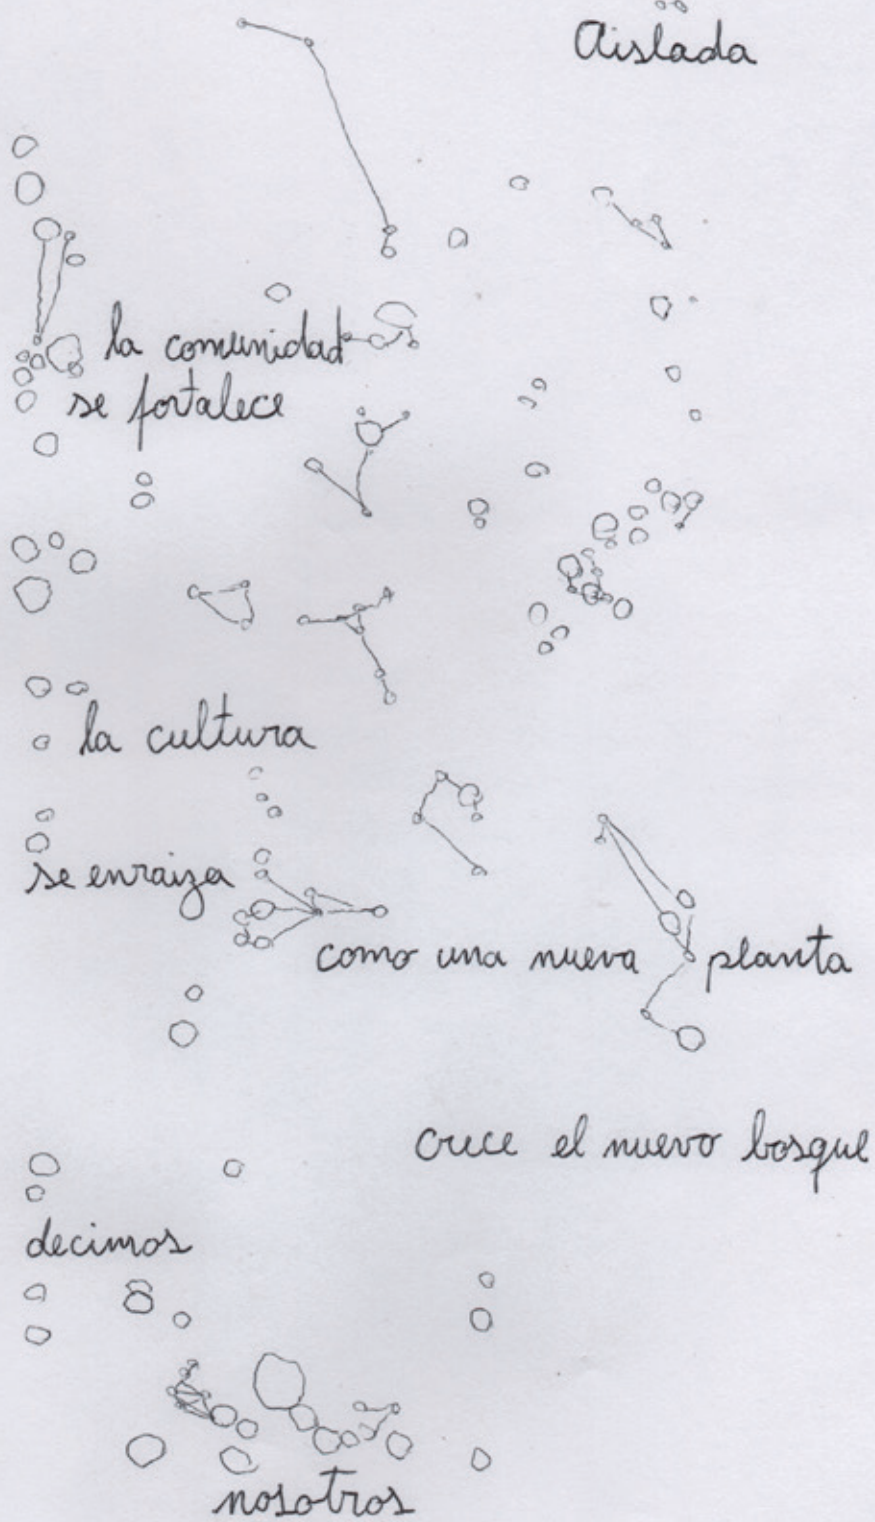 Aislada
la comunidad
se fortalece
la cultura
se enraiza
como una nueva planta
crece el nuevo bosque
decimos
nosotros